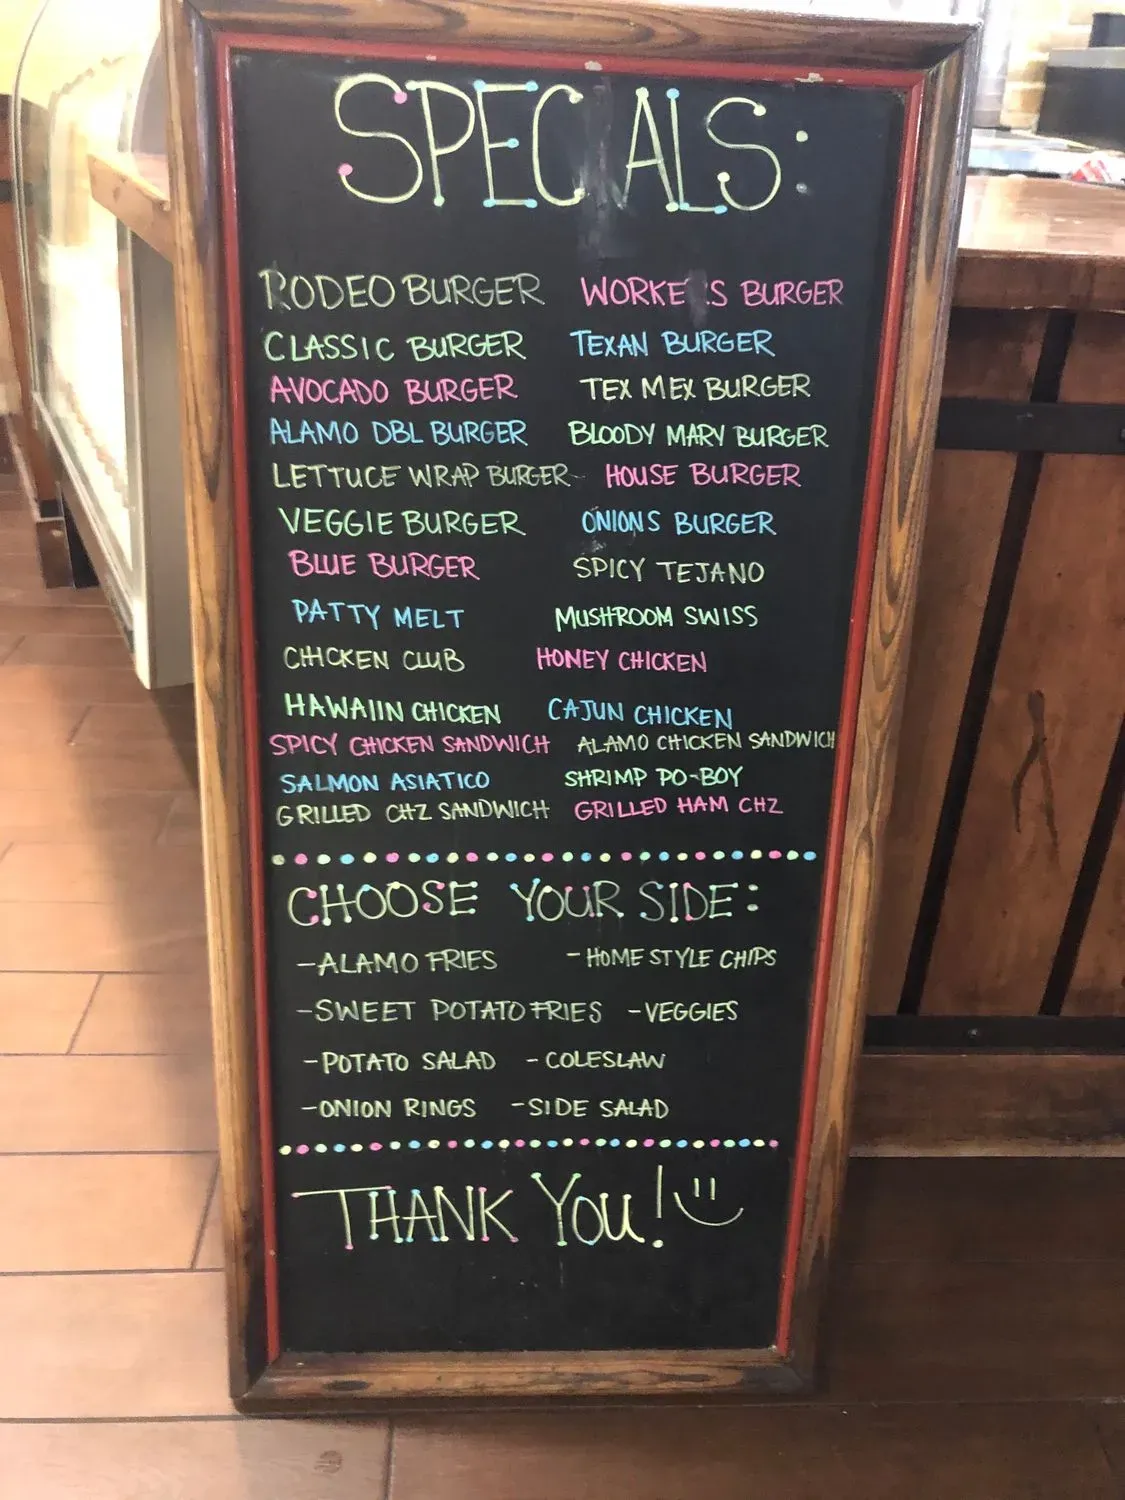 SPEC ALS:
RODEO BURGER WORKE S BURGER
CLASSIC BURGER TEXAN BURGER
AVOCADO BURGER TEX MEX BURGER
ALAMO DBL BURGER BLOODY MARY BURGER
LETTUCE WRAP BURGER HOUSE BURGER
VEGGIE BURGER ONIONS BURGER
BLUE BURGER SPICY TEJANO
PATTY MELT MUSHROOM SWISS
CHICKEN CLUB HONEY CHICKEN
HAWAIIN CHICKEN CAJUN CHICKEN
SPICY CHICKEN SANDWICH ALAMO CHICKEN SANDWICH
SALMON ASIATICO SHRIMP PO-BOY
GRILLED CHZ SANDWICH GRILLED HAM CHZ
CHOOSE YOUR SIDE:
-ALAMO FRIES -HOMESTYLE CHIPS
-SWEET POTATO FRIES -VEGGIES
-POTATO SALAD -COLESLAW
-ONION RINGS -SIDE SALAD
THANK YOU!